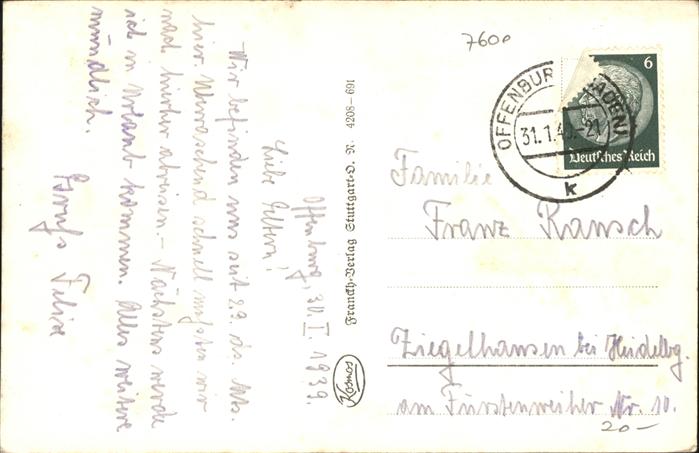 Offenburg, 30. I. 1939.
Liebe Eltern!
Wir befinden uns seit 29. ds. Mts.
hier. Überraschend schnell mußten wir
nach hierher abreisen. – Nächstens werde
ich in Urlaub kommen. Alles weitere
mündlich.
Gruß Felix
Franckh-Verlag Stuttgart-O. N. 4208-691
Kosmos
7600
6
Deutsches Reich
OFFENBURG (BADEN)
31.1.4 -21
k
Familie
Franz Rausch
Ziegelhausen bei Heidelbg
am Fürstenweiher Nr. 10.
20 -